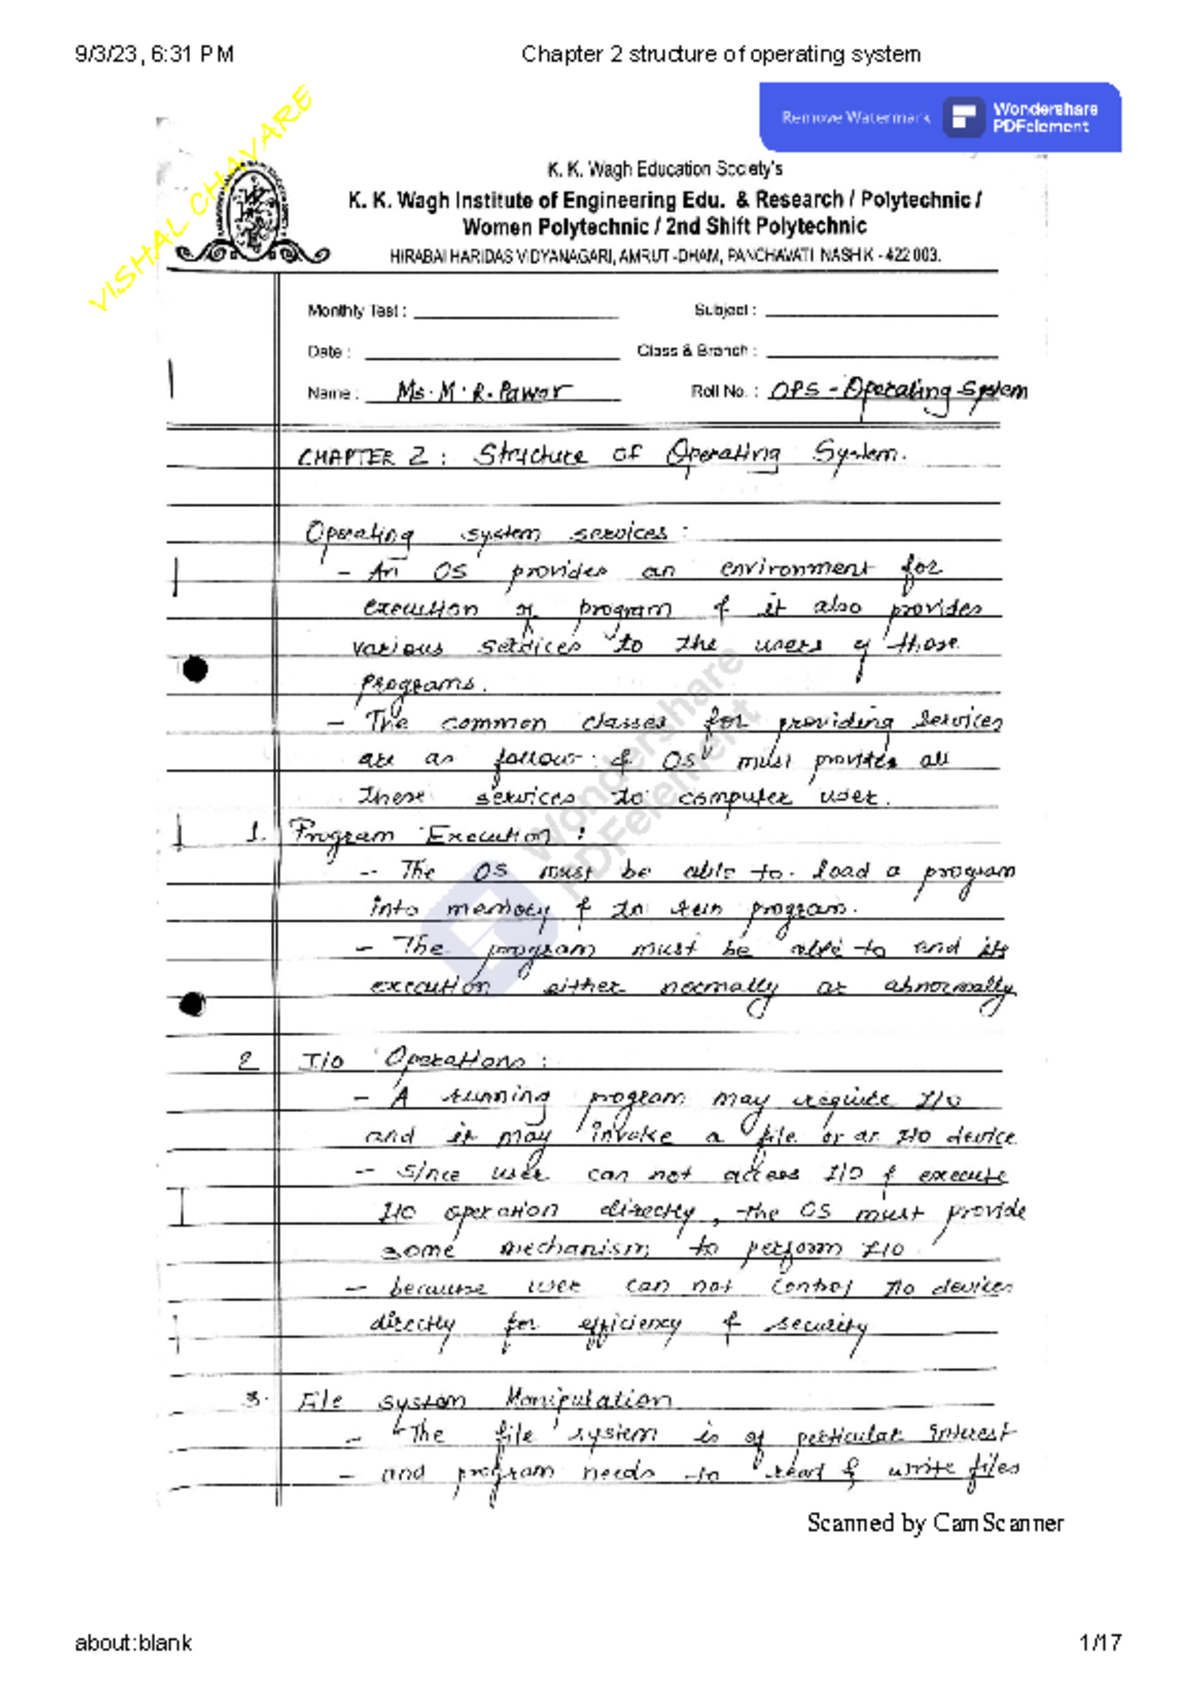 9/3/23, 6:31 PM
Chapter 2 structure of operating system
Remove Watermark
Wondershare
PDFelement
VISHAL CHAVARE
K. K. Wagh Education Society's
K. K. Wagh Institute of Engineering Edu. & Research / Polytechnic /
Women Polytechnic / 2nd Shift Polytechnic
HIRABAI HARIDAS VIDYANAGARI, AMRUT-DHAM, PANCHAVATI NASHIK - 422 003.
Monthly Test :
Subject :
Date :
Class & Branch :
Name : Ms. M. R. Pawar
Roll No. : OPS - Operating System
CHAPTER 2 : Structure of Operating System.
Operating system services :
- An OS provides an environment for
execution of program & it also provides
various services to the users of those
programs.
- The common classes for providing services
are as follow : & OS must provides all
these services to computer user.
1. Program Execution :
-- The OS must be able to load a program
into memory & to run program.
- The program must be able to end its
execution either normally or abnormally
2 I/O Operations :
- A running program may require I/O
and it may invoke a file or an I/O device
- since user can not access I/O & execute
I/O operation directly, the OS must provide
some mechanism to perform I/O
- because user can not control I/O devices
directly for efficiency & security
3. File system Manipulation
- The file system is of perticular interest
- and program needs to read & write files
Wondershare
PDFelement
Scanned by CamScanner
about:blank
1/17